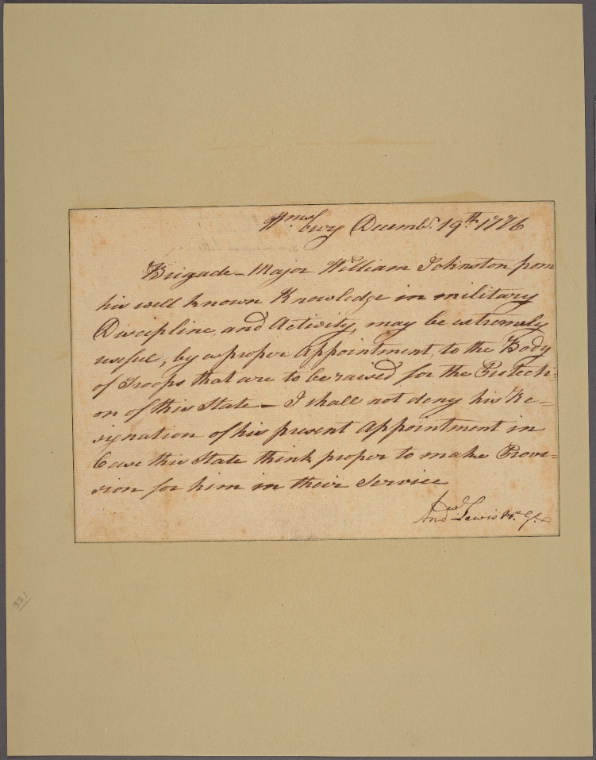 Wmsburg Decemb. 19th 1776
Brigade-Major William Johnston from
his well known Knowledge in military
Discipline, and Activity, may be extremely
useful, by a proper Appointment, to the Body
of Troops that are to be raised for the Protecti-
on of this State — I shall not deny his Re-
signation of his present Appointment in
Case this State think proper to make Provi-
sion for him in their Service
Andw. Lewis B. G.
321